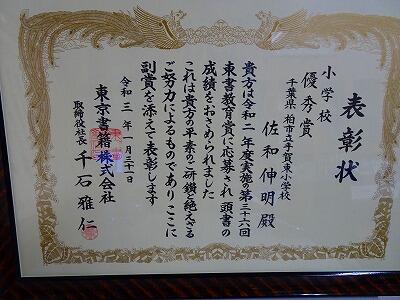 表彰状
小学校
優秀賞
千葉県 柏市立手賀東小学校
佐和伸明殿
貴方は令和二年度実施の第三十六回
東書教育賞に応募され頭書の
成績をおさめられました
これは貴方の平素のご研鑽と絶えざる
ご努力によるものでありここに
副賞を添えて表彰します
令和三年一月三十一日
東京書籍株式会社
取締役社長 千石雅仁